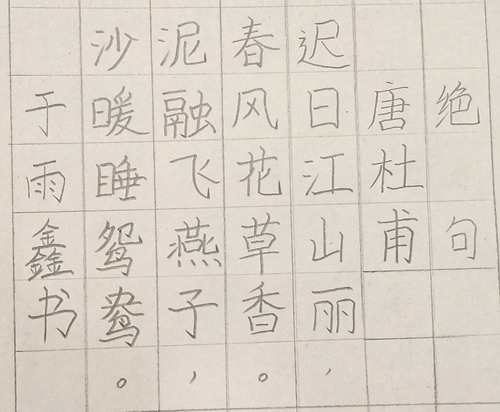 绝句
唐杜甫
迟日江山丽，
春风花草香。
泥融飞燕子，
沙暖睡鸳鸯。
于雨鑫书